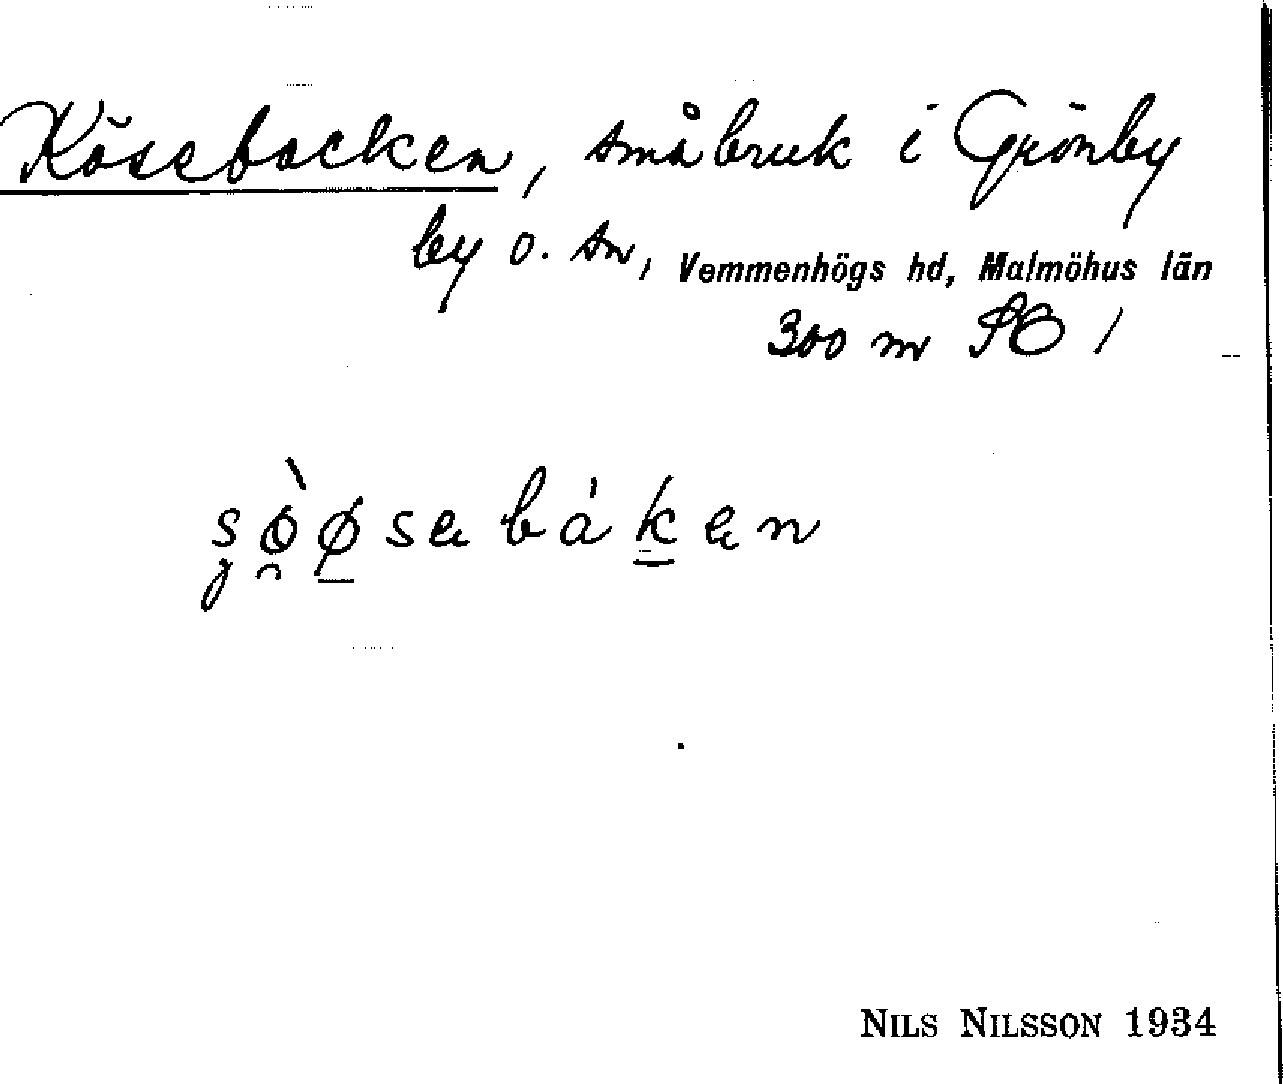 Kösebacken, småbruk i Grönby
by o. sn, Vemmenhögs hd, Malmöhus län
300 m SO /
NILS NILSSON 1934